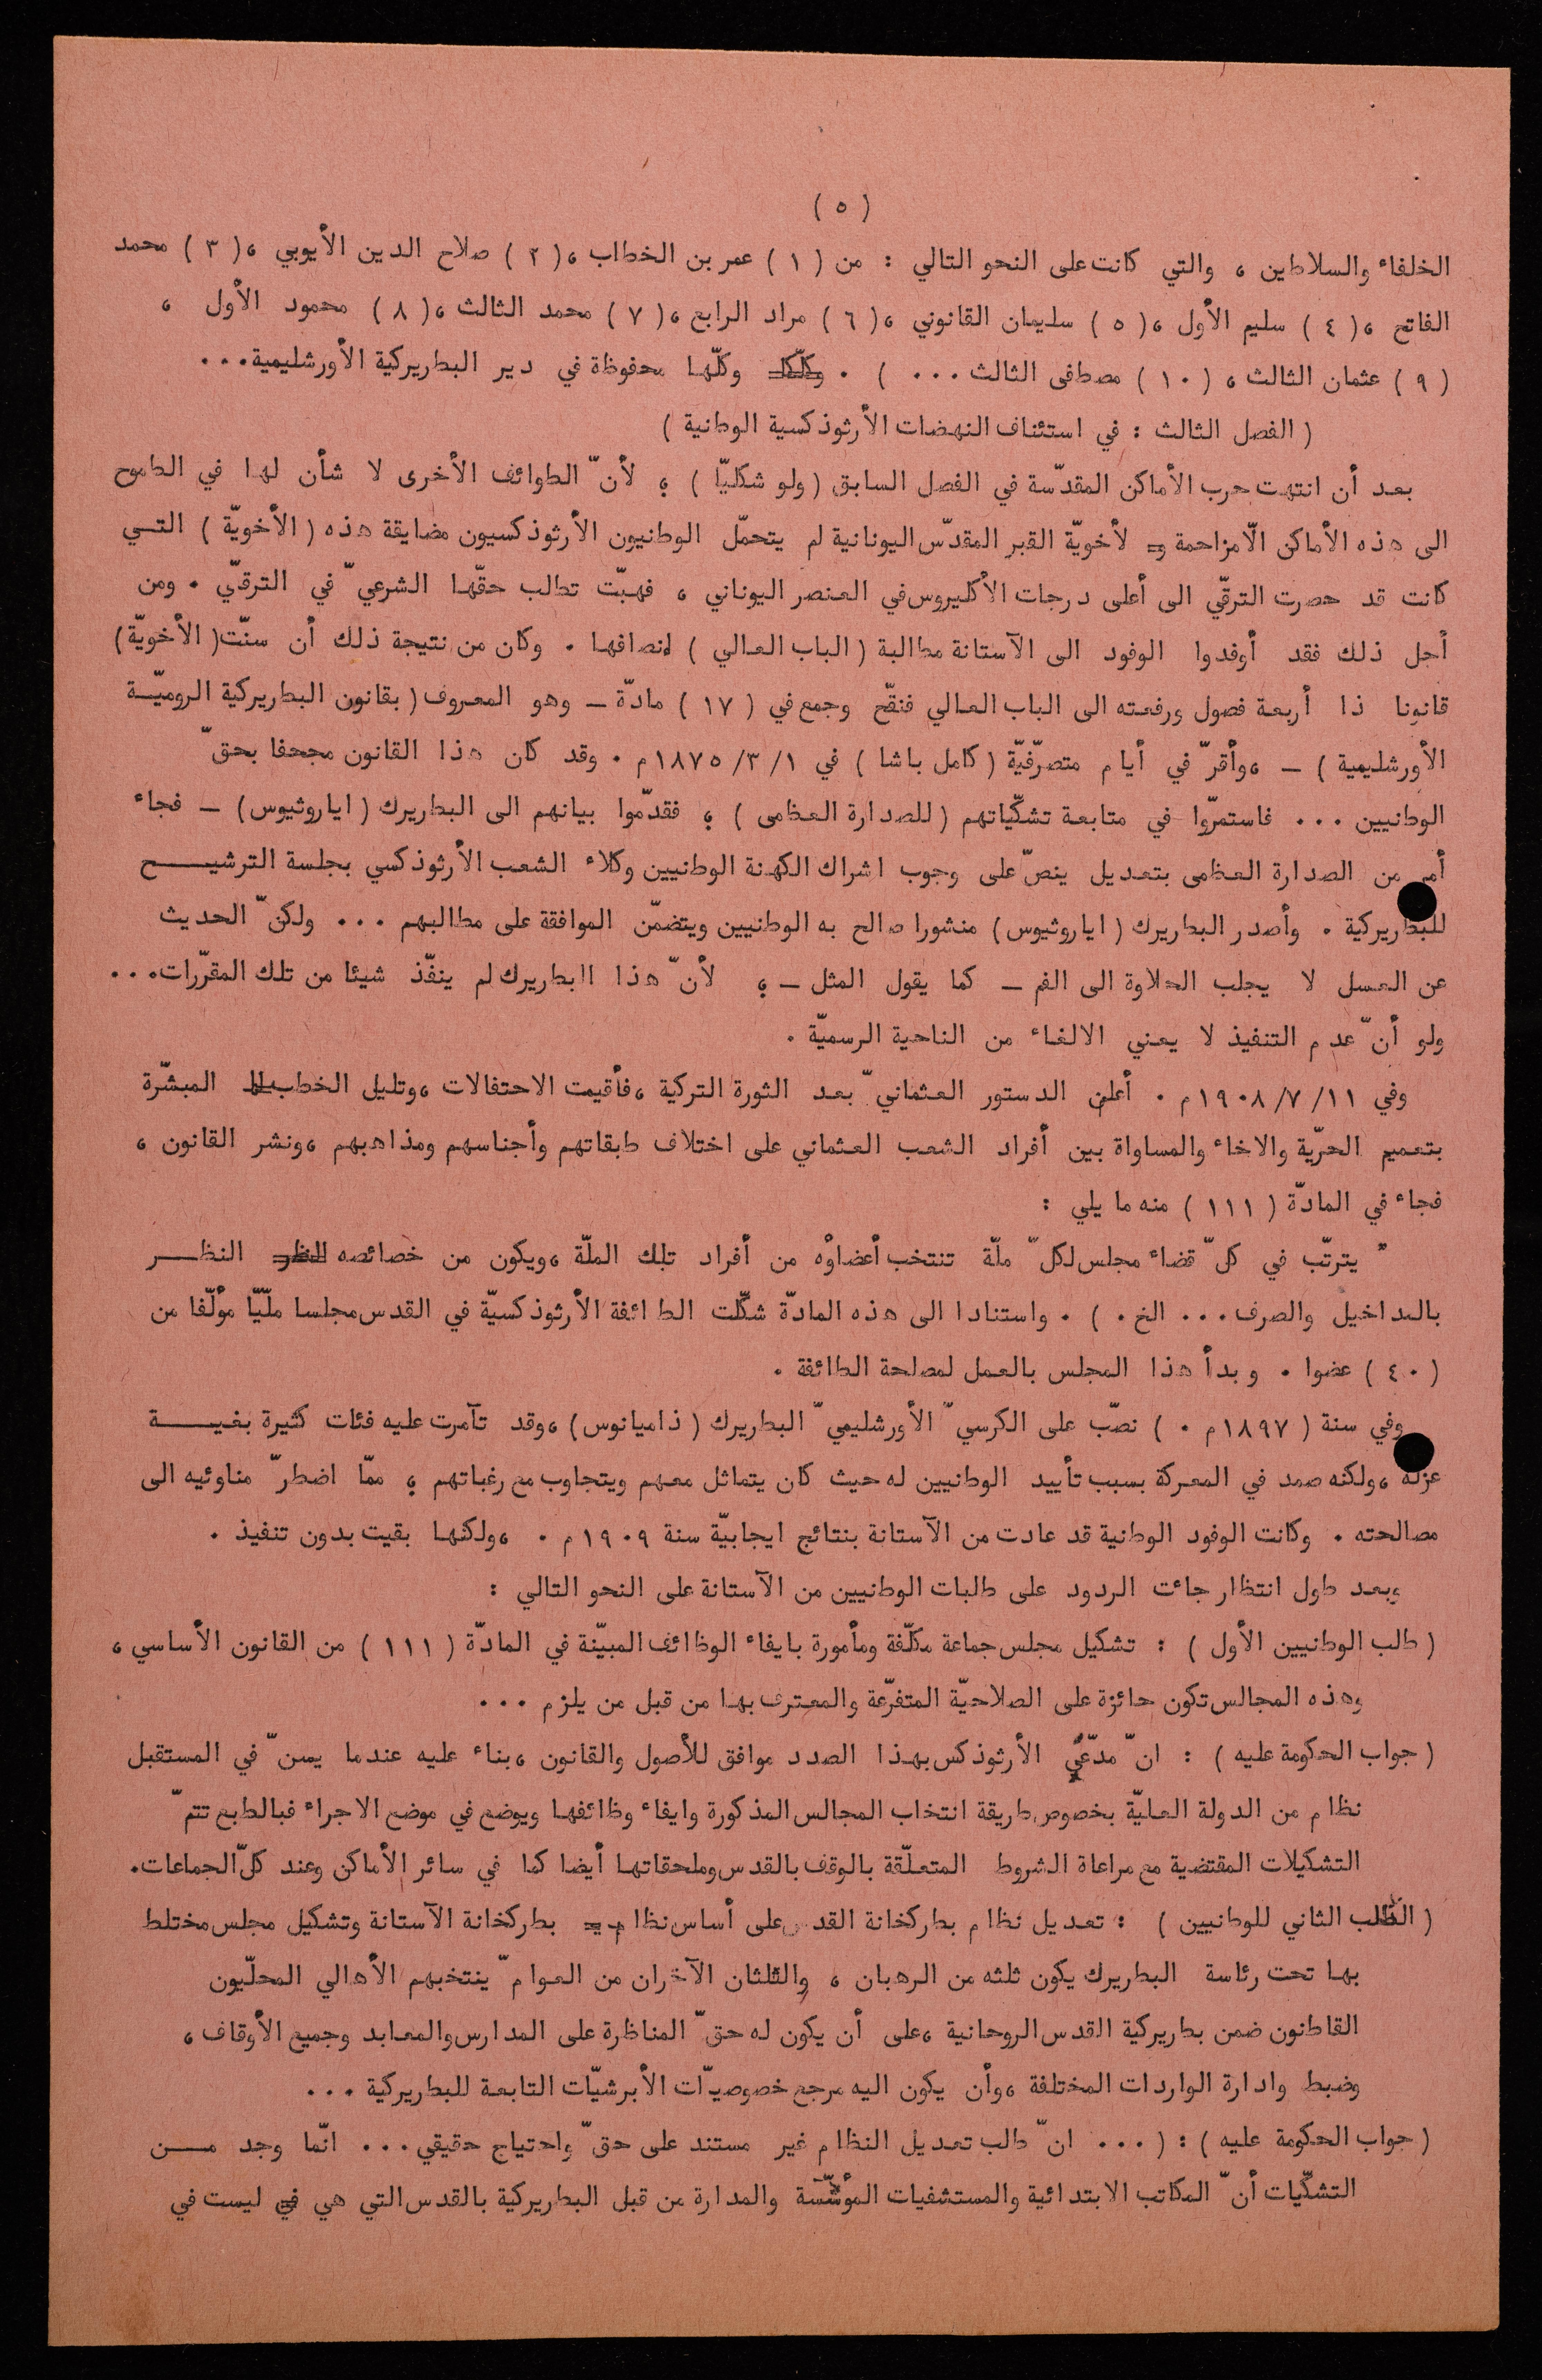 ( ٥ )
الخلفاء والسلاطين ، والتي كانت على النحو التالي : من ( ١ ) عمر بن الخطاب ،( ٢ ) صلاح الدين الأيوبي ،( ٣ ) محمد
الفاتح ،( ٤ ) سليم الأول ،( ٥ ) سليمان القانوني ،( ٦ ) مراد الرابع ،( ٧ ) محمد الثالث ،( ٨ ) محمود الأول ،
( ٩ ) عثمان الثالث ، ( ١٠ ) مصطفى الثالث ... ) . وكلّها محفوظة في دير البطريركية الأورشليمية...
( الفصل الثالث : في استئناف النهضات الأرثوذكسية الوطنية )
بعد أن انتهت حرب الأماكن المقدّسة في الفصل السابق ( ولو شكليّا ) ؛ لأنّ الطوائف الأخرى لا شأن لها في الطموح
الى هذه الأماكن الّا مزاحمة لأخويّة القبر المقدّس اليونانية لم يتحمّل الوطنيون الأرثوذكسيون مضايقة هذه ( الأخويّة ) التـي
كانت قد حصرت الترقّي الى أعلى درجات الأكليروس في العنصر اليوناني ، فهبّت تطالب حقّها الشرعيّ في الترقّي . ومن
أجل ذلك فقد أوفدوا الوفود الى الآستانة مطالبة ( الباب العالي ) لانصافها . وكان من نتيجة ذلك أن سنّت( الأخويّة )
قانونا ذا أربعة فصول ورفعته الى الباب العالي فنقّح وجمع في ( ١٧ ) مادّة ــ وهو المعروف ( بقانون البطريركية الروميّـة
الأورشليمية ) ــ ،وأقرّ في أيام متصرّفيّة ( كامل باشا ) في ١/ ٣/ ١٨٧٥م . وقد كان هذا القانون مجحفا بحقّ
الوطنيين ... فاستمرّوا في متابعة تشكّياتهم ( للصدارة العظمى ) ؛ فقدّموا بيانهم الى البطريرك ( اياروثيوس ) ــ فجاء
أمر من الصدارة العظمى بتعديل ينصّ على وجوب اشراك الكهنة الوطنيين وكلاء الشعب الأرثوذكسي بجلسة الترشيـــح
للبطريركية . وأصدر البطريرك ( اياروثيوس ) منشورا صالح به الوطنيين ويتضمّن الموافقة على مطالبهم ... ولكنّ الحديث
عن العسل لا يجلب الحلاوة الى الفم ــ كما يقول المثل ــ ؛ لأنّ هذا البطريرك لم ينفّذ شيئا من تلك المقرّرات...
ولو أنّ عدم التنفيذ لا يعني الالغاء من الناحية الرسميّة .
وفي ١١/ ٧/ ١٩٠٨م . أعلن الدستور العثمانيّ بعد الثورة التركية ،فأقيمت الاحتفالات ،وتليل الخطاب المبشّرة
بتعميم الحرّية والاخاء والمساواة بين أفراد الشعب العثماني على اختلاف طبقاتهم وأجناسهم ومذاهبهم ،ونشر القانون ،
فجاء في المادّة ( ١١١ ) منه ما يلي :
" يترتّب في كلّ قضاء مجلس لكلّ ملّة تنتخب أعضاؤه من أفراد تلك الملّة ،ويكون من خصائصه النظـر
بالمداخيل والصرف ... الخ . ) . واستنادا الى هذه المادّة شكّلت الطائفة الأرثوذكسيّة في القدس مجلسا ملّيّا مؤلّفا من
( ٤٠ ) عضوا . وبدأ هذا المجلس بالعمل لمصلحة الطائفة .
وفي سنة ( ١٨٩٧م . ) نصّب على الكرسيّ الأورشليميّ البطريرك ( ذاميانوس ) ،وقد تآمرت عليه فئات كثيرة بغيـــة
عزله ،ولكنه صمد في المعركة بسبب تأييد الوطنيين له حيث كان يتماثل معهم ويتجاوب مع رغباتهم ؛ ممّا اضطرّ مناوئيه الى
مصالحته . وكانت الوفود الوطنية قد عادت من الآستانة بنتائج ايجابيّة سنة ١٩٠٩م . ،ولكنها بقيت بدون تنفيذ .
وبعد طول انتظار جائت الردود على طلبات الوطنيين من الآستانة على النحو التالي :
( طلب الوطنيين الأول ) : تشكيل مجلس جماعة مكلّفة ومأمورة بايفاء الوظائف المبيّنة في المادّة ( ١١١ ) من القانون الأساسي ،
وهذه المجالس تكون حائزة على الصلاحيّة المتفرّعة والمعترف بها من قبل من يلزم ...
( جواب الحكومة عليه ) : انّ مدّعى الأرثوذكس بهذا الصدد موافق للأصول والقانون ،بناء عليه عندما يسنّ في المستقبل
نظام من الدولة العليّة بخصوص طريقة انتخاب المجالس المذكورة وايفاء وظائفها ويوضع في موضع الاجراء فبالطبع تتمّ
التشكيلات المقتضية مع مراعاة الشروط المتعلّقة بالوقف بالقدس وملحقاتها أيضا كما في سائر الأماكن وعند كلّ الجماعات.
( الطلب الثاني للوطنيين ) : تعديل نظام بطركخانة القدس على أساس نظام بطركخانة الآستانة وتشكيل مجلس مختلط
بها تحت رئاسة البطريرك يكون ثلثه من الرهبان ، والثلثان الآخران من العوامّ ينتخبهم الأهالي المحلّيون
القاطنون ضمن بطريركية القدس الروحانية ،على أن يكون له حقّ المناظرة على المدارس والمعابد وجميع الأوقاف ،
وضبط وادارة الواردات المختلفة ،وأن يكون اليه مرجع خصوصيّات الأبرشيّات التابعة للبطريركية ...
( جواب الحكومة عليه ) : ( ... انّ طلب تعديل النظام غير مستند على حقّ واحتياج حقيقي ... انّما وجد مـــن
التشكّيات أنّ المكاتب الابتدائية والمستشفيات المؤسّسة والمدارة من قبل البطريركية بالقدس التي هي ليست في